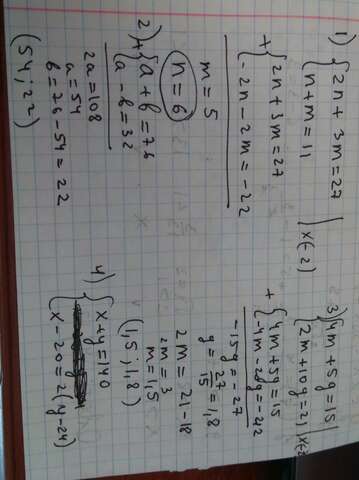 1) { 2n + 3m = 27
n + m = 11 | x(-2)
+ { 2n + 3m = 27
-2n - 2m = -22
m = 5
n = 6
2) + { a + b = 76
a - b = 32
2a = 108
a = 54
b = 76 - 54 = 22
(54; 22)
3) { 4m + 5g = 15
2m + 10g = 21 | x(-2)
+ { 4m + 5g = 15
-4m - 20g = -42
-15g = -27
g = 27/15 = 1,8
2m = 21 - 18
2m = 3
m = 1,5
(1,5; 1,8)
4) { x + y = 140
x - 20 = 2(y - 24)